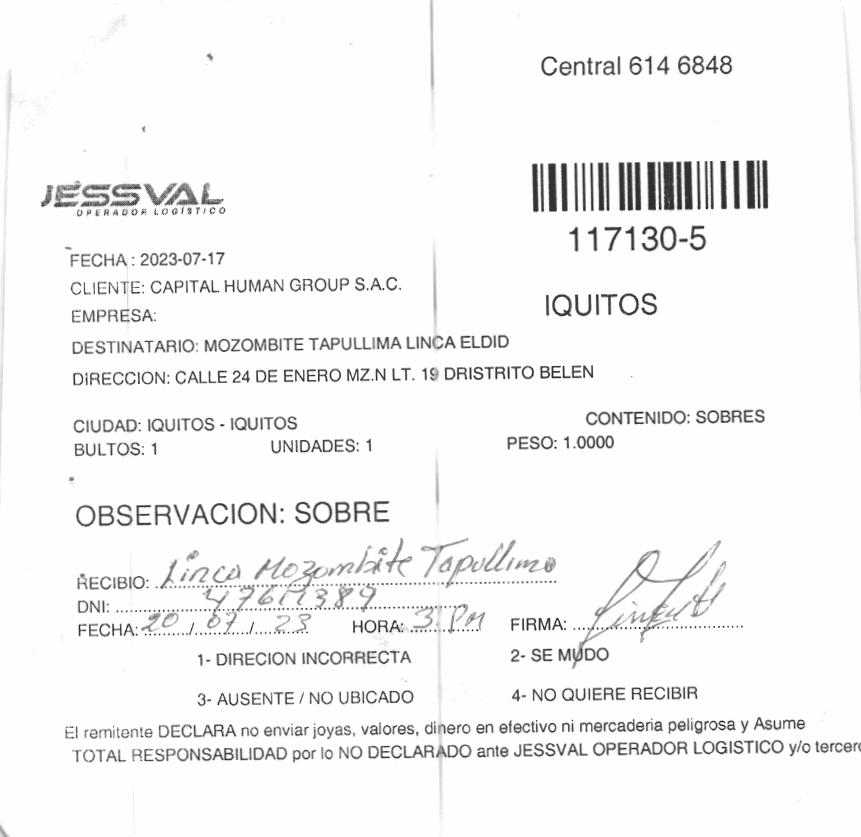 Central 614 6848
JESSVAL
OPERADOR LOGÍSTICO
117130-5
FECHA : 2023-07-17
CLIENTE: CAPITAL HUMAN GROUP S.A.C.
IQUITOS
EMPRESA:
DESTINATARIO: MOZOMBITE TAPULLIMA LINCA ELDID
DIRECCION: CALLE 24 DE ENERO MZ.N LT. 19 DRISTRITO BELEN
CIUDAD: IQUITOS - IQUITOS CONTENIDO: SOBRES
BULTOS: 1 UNIDADES: 1 PESO: 1.0000
OBSERVACION: SOBRE
RECIBIO: Linca Mozombite Tapullima
DNI:
FECHA: 20/07/23 HORA: 3 Pm FIRMA:
1- DIRECION INCORRECTA 2- SE MUDO
3- AUSENTE / NO UBICADO 4- NO QUIERE RECIBIR
El remitente DECLARA no enviar joyas, valores, dinero en efectivo ni mercaderia peligrosa y Asume
TOTAL RESPONSABILIDAD por lo NO DECLARADO ante JESSVAL OPERADOR LOGISTICO y/o tercero